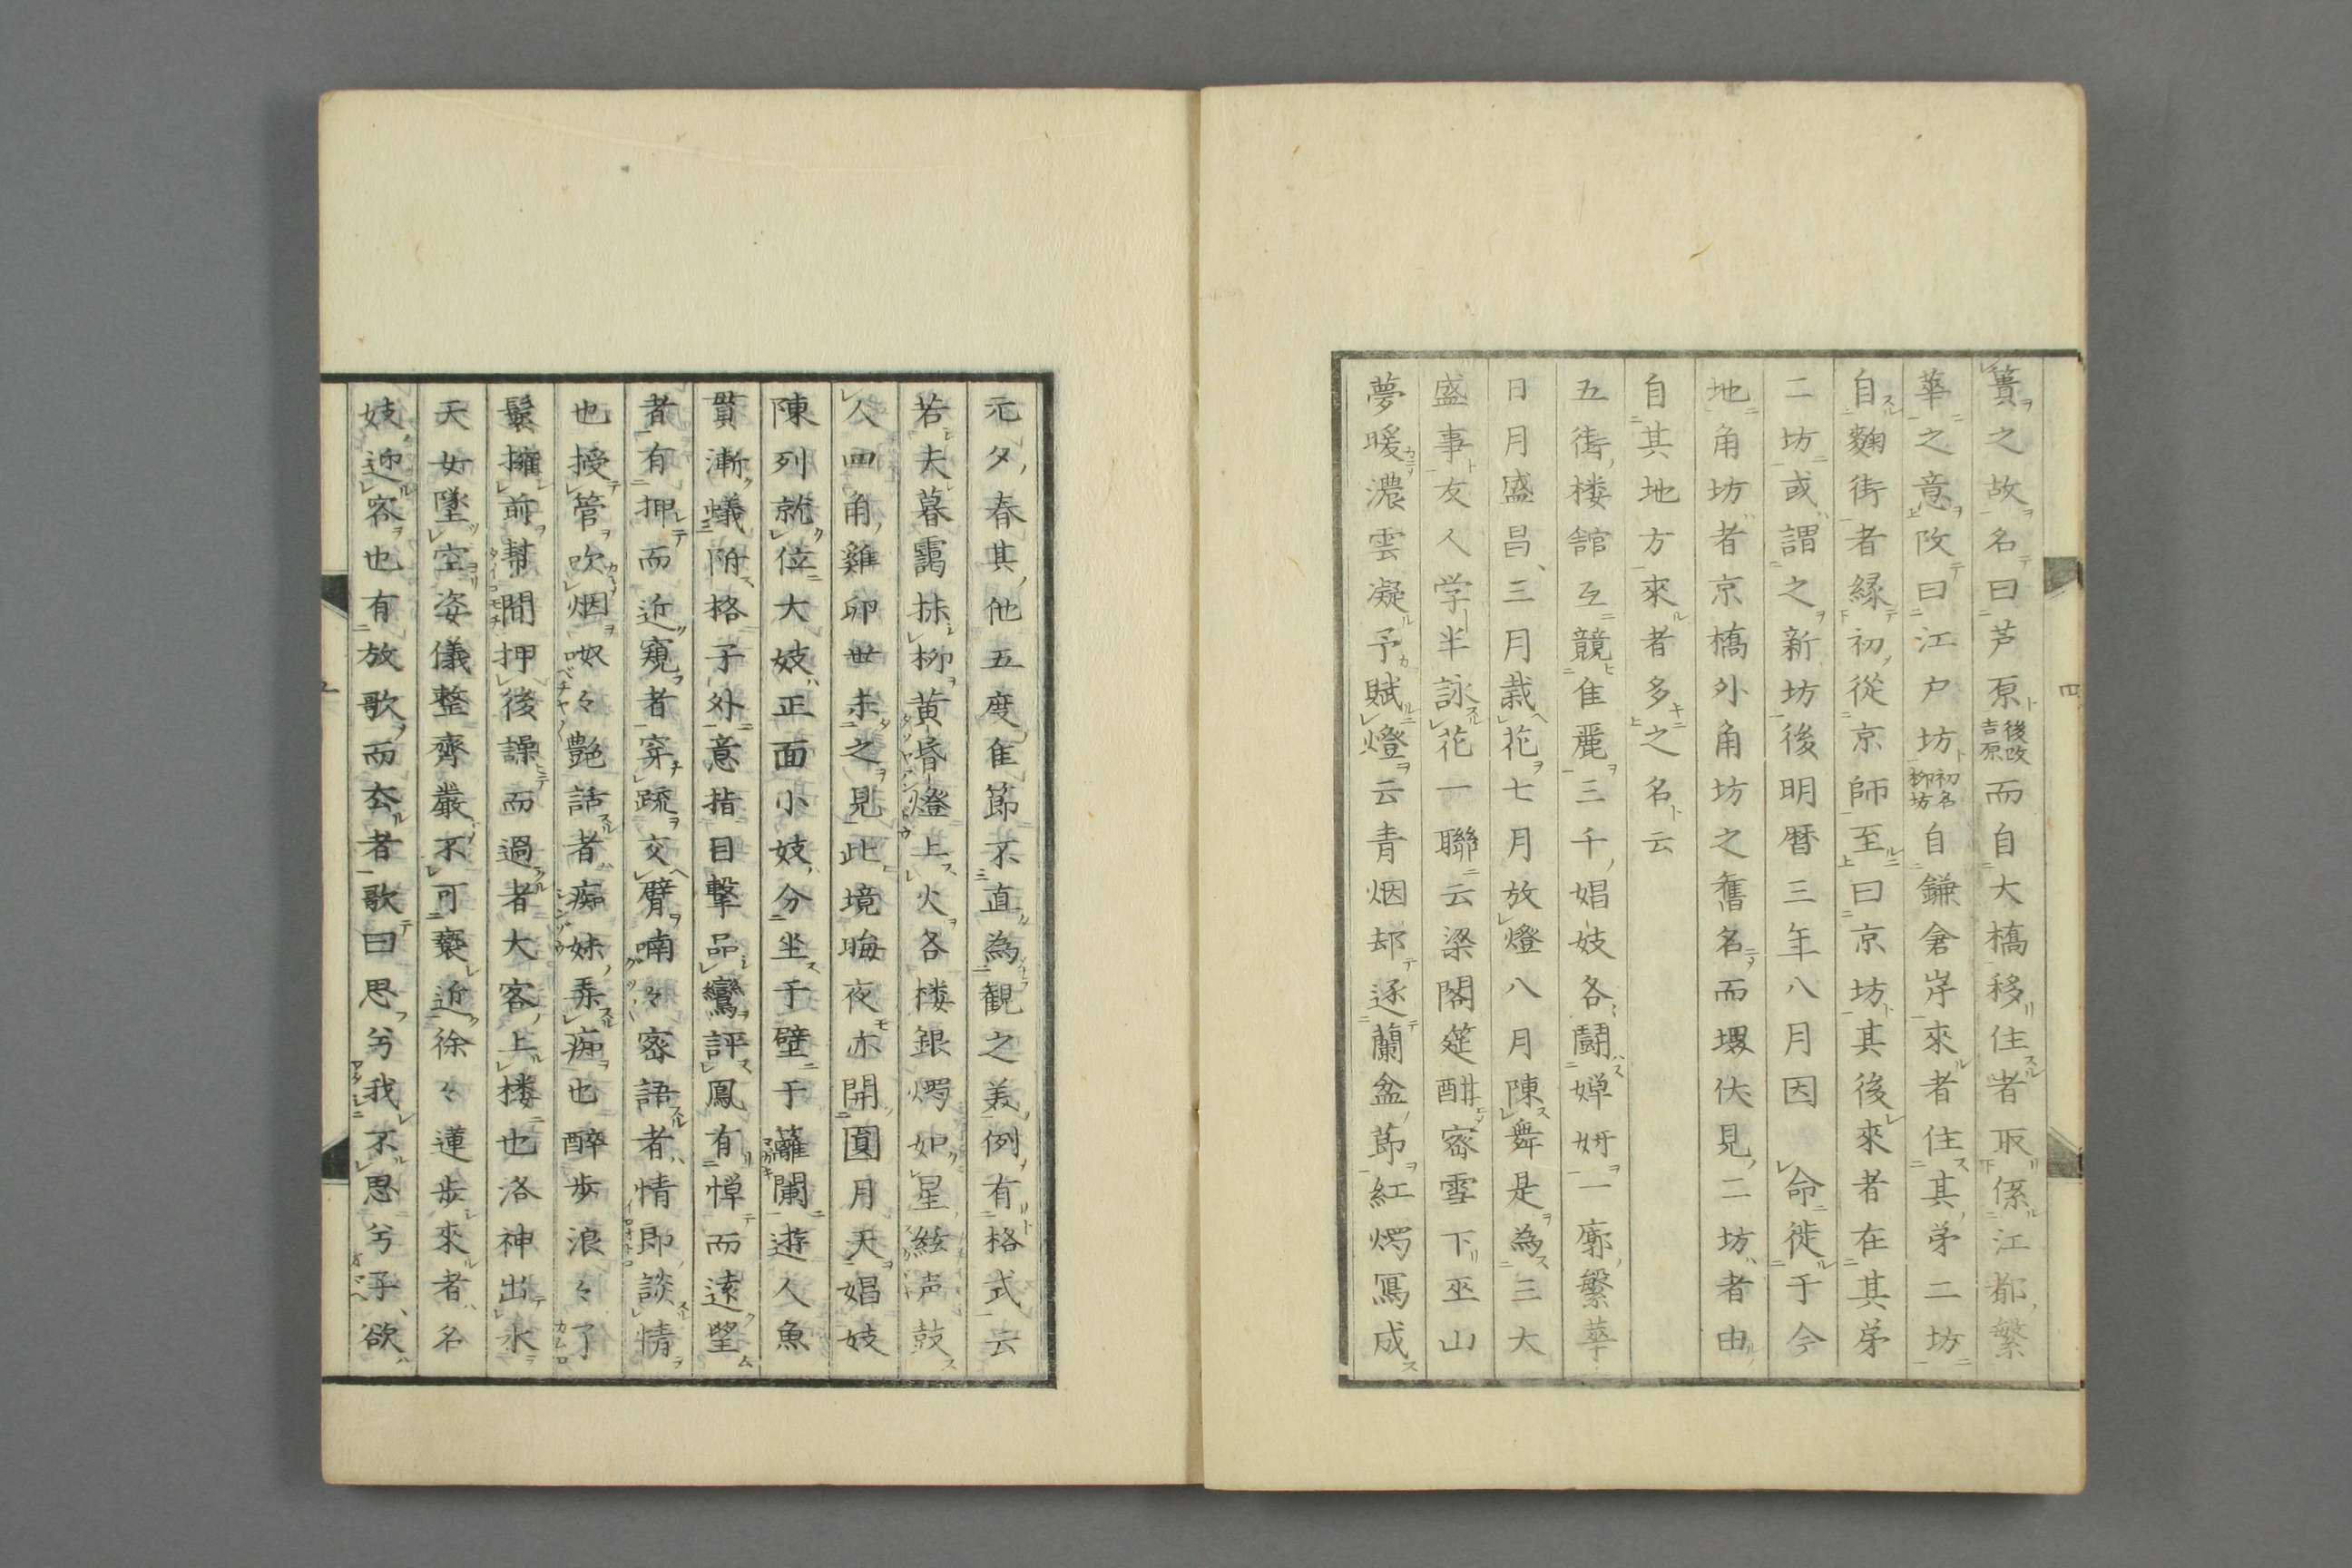 簀之故名曰芦原後改吉原而自大橋移住者取係江都繁
華之意改曰江戸坊初名柳坊自鎌倉岸來者住其弟二坊
自麹街者縁初從京師至曰京坊其後來者在其弟
二坊或謂之新坊後明暦三年八月因命徙于今
地角坊者京橋外角坊之舊名而堺伏見二坊者由
自其地方來者多之名云
五街楼舘互競佳麗三千娼妓各鬪嬋妍一廓繁華
日月盛昌三月栽花七月放燈八月陳舞是為三大
盛事友人学半詠花一聯云梁閣筵酣密雪下巫山
夢暖濃雲凝予賦燈云青烟却逐蘭盆節紅燭冩成
四
元夕春其他五度佳節不直為観之美例有格式云
若夫暮靄抹柳黄昏燈上火各楼銀燭如星絃声鼓
人四角雞卵世未之見此境晦夜亦開圓月天娼妓
陳列就位大妓正面小妓分坐于壁于籬闌遊人魚
貫漸蟻附格子外意指目撃品鸞評鳳有憚而遠望
者有押而近窺者穿疏交臂喃々密語者情郎談情
也授管吹烟呶々艶話者痴妹弄痴也醉歩浪々了
鬟擁前幇間押後譟而過者大客上楼也洛神出水
天女墜空姿儀整齊嚴不可褻近徐々蓮歩來者名
妓迎客也有放歌而去者歌曰思兮我不思兮子欲